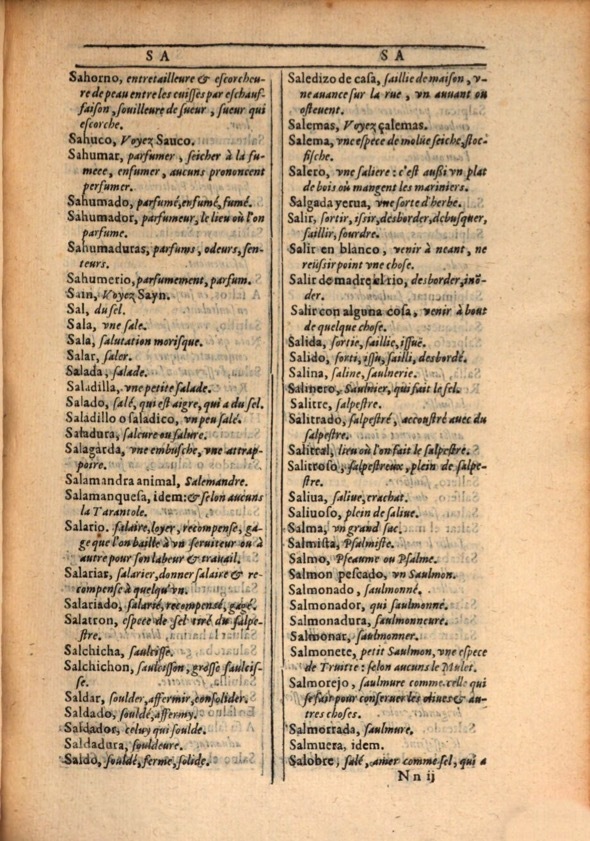 SA
Sahorno, entretailleure & escorcheu-
re de peau entre les cuisses par eschauf-
faison, souilleure de sueur, sueur qui
escorche.
Sahuco, Voyez Sauco.
Sahumar, parfumer, seicher à la fu-
meee, enfumer, aucuns prononcent
perfumer.
Sahumado, parfumé, enfumé, fumé.
Sahumador, parfumeur, le lieu où l'on
parfume.
Sahumaduras, parfums, odeurs, sen-
teurs.
Sahumerio, parfumement, parfum.
Sain, Voyez Sayn.
Sal, du sel.
Sala, vne sale.
Sala, salutation morisque.
Salar, saler.
Salada, salade.
Saladilla, vne petite salade.
Salado, salé, qui est aigre, qui a du sel.
Saladillo o saladico, vn peu salé.
Saladura, saleure ou salure.
Salagarda, vne embusche, vne attrap-
poire.
Salamandra animal, Salemandre.
Salamanquesa, idem: & selon aucuns
la Tarantole.
Salario. salaire, loyer, recompense, ga-
ge que l'on baille à vn seruiteur ou à
autre pour son labeur & trauail.
Salariar, salarier, donner salaire & re-
compense à quelqu'vn.
Salariado, salarié, recompensé, gagé.
Salatron, espece de sel tiré du salpe-
stre.
Salchicha, saulcisse.
Salchichon, saulcisson, grosse saulcis-
se.
Saldar, soulder, affermir, consolider.
Saldado, souldé, affermy.
Saldador, celuy qui soulde.
Saldadura, souldeure.
Saldo, souldé, ferme, solide.
SA
Saledizo de casa, saillie de maison, v-
ne auance sur la rue, vn auuant ou
osteuent.
Salemas, Voyez çalemas.
Salema, vne espece de moluë seiche, stoc-
fische.
Salero, vne saliere: c'est aussi vn plat
de bois où mangent les mariniers.
Salgada yerua, vne sorte d'herbe.
Salir, sortir, issir, desborder, debusquer,
saillir, sourdre.
Salir en blanco, venir à neant, ne
reüssir point vne chose.
Salir de madre el rio, desborder, inõ-
der.
Salir con alguna cosa, venir à bout
de quelque chose.
Salida, sortie, saillie, issuë.
Salido, sorti, issu, sailli, desbordé.
Salina, saline, saulnerie.
Salinero, Saulnier, qui fait le sel.
Salitre, salpestre.
Salitrado, salpestré, accoustré auec du
salpestre.
Salitral, lieu où l'on fait le salpestre.
Salitroso, salpestreux, plein de salpe-
stre.
Saliua, saliue, crachat.
Saliuoso, plein de saliue.
Salma, vn grand sac.
Salmista, Psalmiste.
Salmo, Pseaume ou Psalme.
Salmon pescado, vn Saulmon.
Salmonado, saulmonné.
Salmonador, qui saulmonne.
Salmonadura, saulmonneure.
Salmonar, saulmonner.
Salmonete, petit Saulmon, vne espece
de Truitte: selon aucuns le Mulet.
Salmorejo, saulmure comme celle qui
se fait pour conseruer les oliues & au-
tres choses.
Salmorrada, saulmure.
Salmuera, idem.
Salobre, salé, amer comme sel, qui a
Nn ij